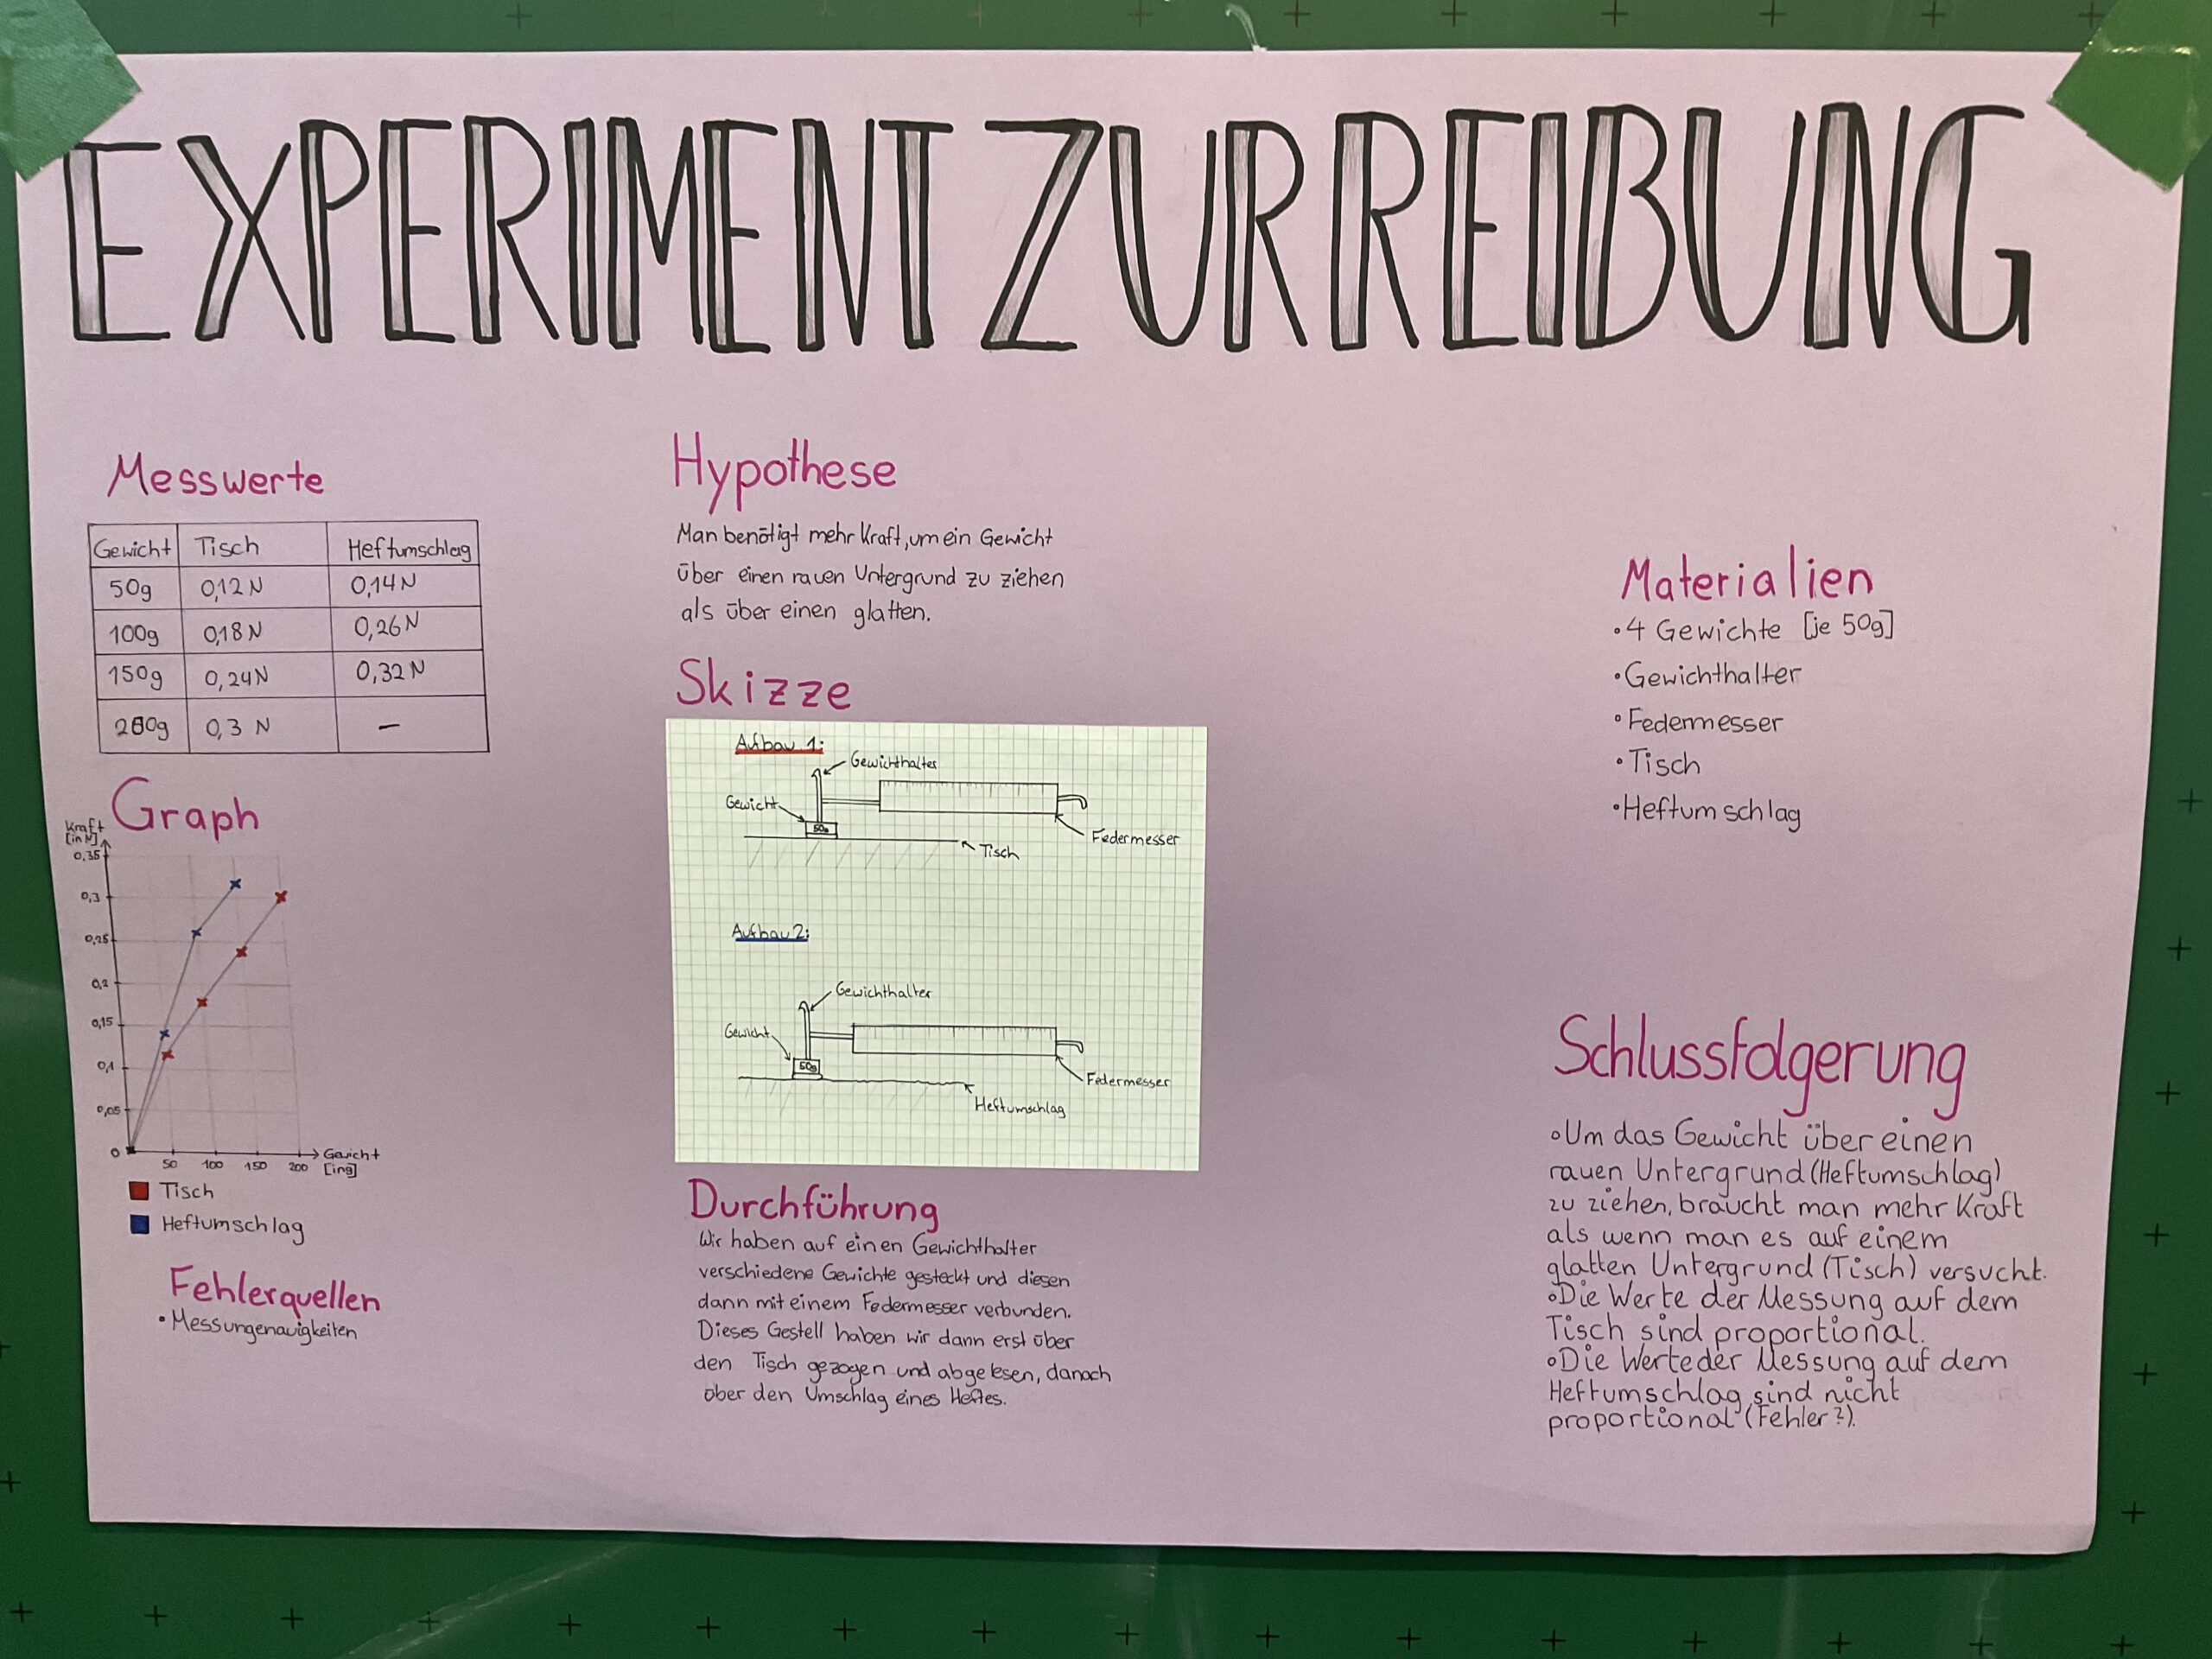 EXPERIMENT ZUR REIBUNG
Messwerte
Gewicht Tisch Heftumschlag
50g 0,12 N 0,14 N
100g 0,18 N 0,26 N
150g 0,24 N 0,32 N
200g 0,3 N —
Graph
Kraft
[in N]
0,35
0,3
0,25
0,2
0,15
0,1
0,05
0
50 100 150 200
Gewicht
[in g]
Tisch
Heftumschlag
Fehlerquellen
• Messungenauigkeiten
Hypothese
Man benötigt mehr Kraft, um ein Gewicht
über einen rauen Untergrund zu ziehen
als über einen glatten.
Skizze
Aufbau 1:
Gewichthalter
Gewicht
50g
Federmesser
Tisch
Aufbau 2:
Gewichthalter
Gewicht
50g
Federmesser
Heftumschlag
Durchführung
Wir haben auf einen Gewichthalter
verschiedene Gewichte gesteckt und diesen
dann mit einem Federmesser verbunden.
Dieses Gestell haben wir dann erst über
den Tisch gezogen und abgelesen, danach
über den Umschlag eines Heftes.
Materialien
• 4 Gewichte [je 50g]
• Gewichthalter
• Federmesser
• Tisch
• Heftumschlag
Schlussfolgerung
• Um das Gewicht über einen
rauen Untergrund (Heftumschlag)
zu ziehen, braucht man mehr Kraft
als wenn man es auf einem
glatten Untergrund (Tisch) versucht.
• Die Werte der Messung auf dem
Tisch sind proportional.
• Die Werte der Messung auf dem
Heftumschlag sind nicht
proportional (Fehler?).